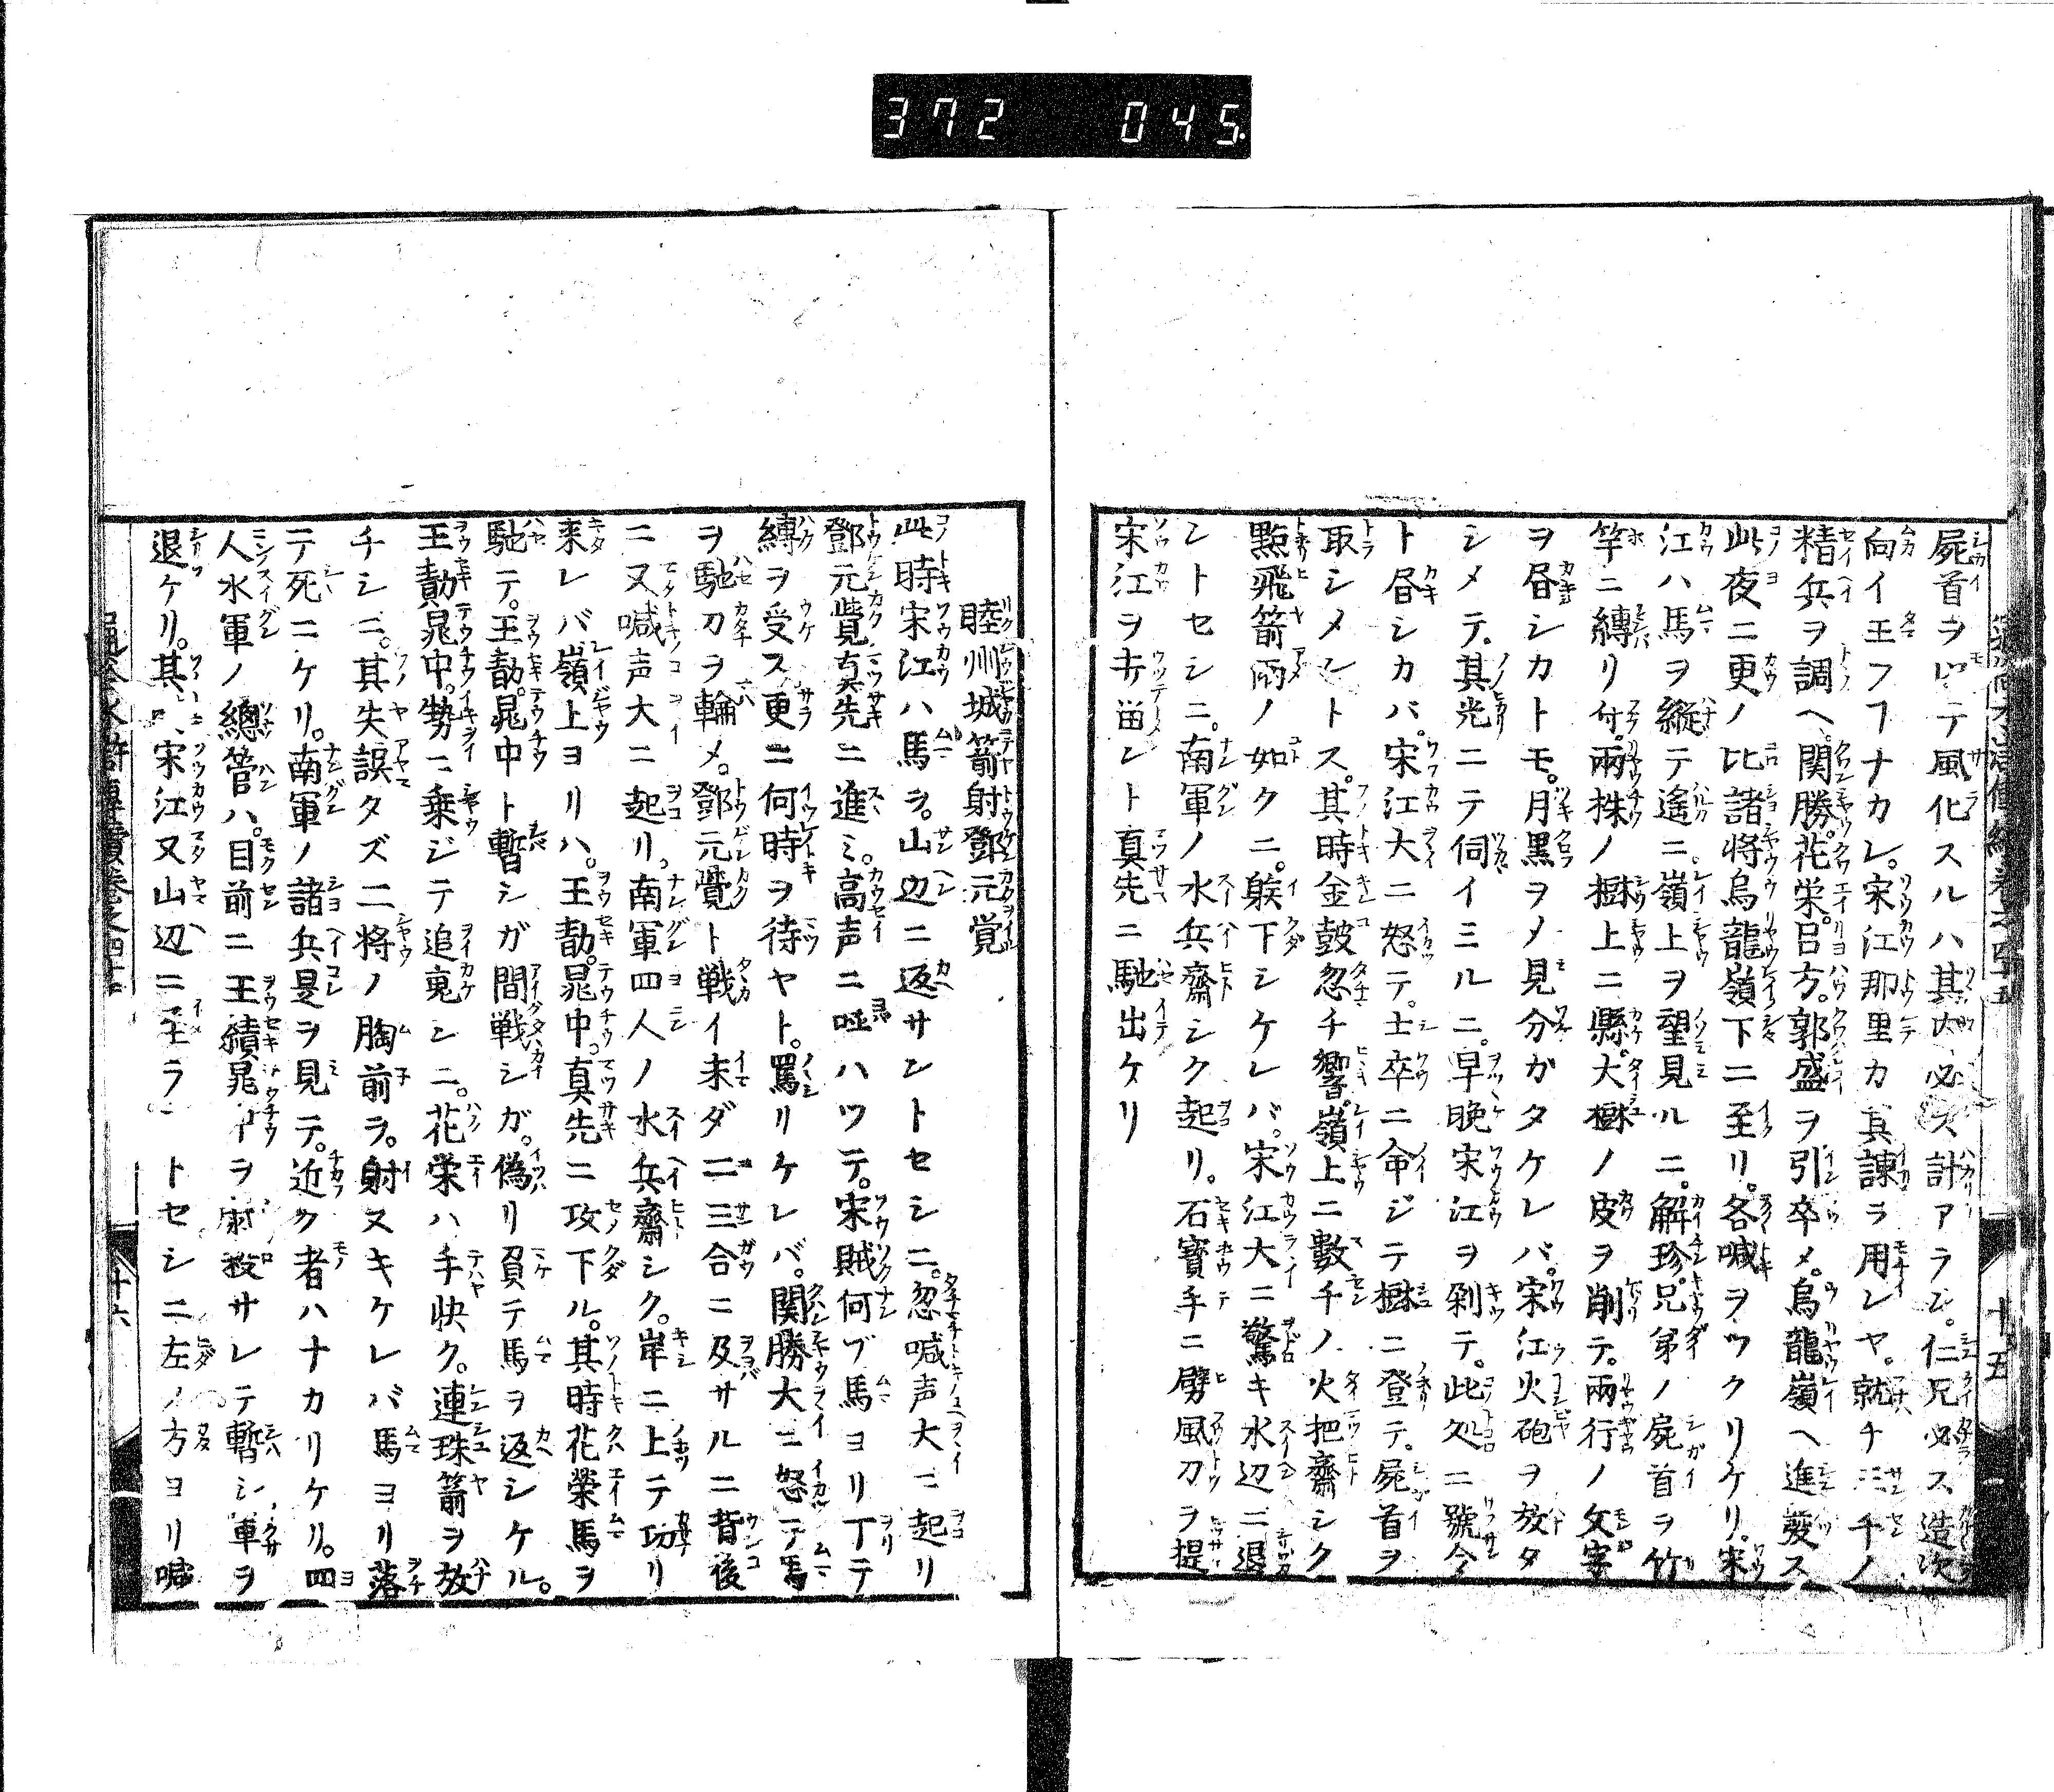 372 045
屍首ヲ以テ風化スルハ其内必ス計アラン。仁兄必ス造次
向イ玉フナカレ。宋江那里カ其諫ヲ用レヤ。就チ三千ノ
精兵ヲ調ヘ。関勝。花栄。呂方。郭盛ヲ引卒メ。烏龍嶺ヘ進發ス
此夜二更ノ比諸将烏龍嶺下ニ至リ。各喊ヲツクリケリ。宋
江ハ馬ヲ縦テ遙ニ。嶺上ヲ望見ルニ。解珍兄弟ノ屍首ヲ竹
竿ニ縛リ付。兩株ノ樹上ニ縣。大樹ノ皮ヲ削テ。兩行ノ文字
ヲ昼シカトモ。月黒ヲメ見分ガタケレバ。宋江火砲ヲ放タ
シメテ。其光ニテ伺イミルニ。早晩宋江ヲ剁テ。此処ニ號令
ト昼シカバ。宋江大ニ怒テ。士卒ニ命ジテ樹ニ登テ。屍首ヲ
取シメントス。其時金鼓忽チ響。嶺上ニ數千ノ火把齋シク
點飛箭雨ノ如クニ。躾下シケレバ。宋江大ニ驚キ水辺ニ退
ントセシニ。南軍ノ水兵齋シク起リ。石寳手ニ劈風刀ヲ提
宋江ヲ留ント真先ニ馳出ケリ
十五
睦州城箭射鄧元覚
此時宋江ハ馬ヲ。山辺ニ返サントセシニ。忽喊声大ニ起リ
鄧元覺真先ニ進ミ。高声ニ呼ハツテ。宋賊何ブ馬ヨリ丁テ
縛ヲ受ス更ニ何時ヲ待ヤト。罵リケレバ。関勝大ニ怒テ馬
ヲ馳刀ヲ輪メ。鄧元覺ト戦イ未ダ二三合ニ及サルニ背後
ニ又喊声大ニ起リ。南軍四人ノ水兵齋シク。岸ニ上テ功リ
来レバ嶺上ヨリハ。王勣。晁中。真先ニ攻下ル。其時花榮馬ヲ
馳テ。王勣。晁中ト暫シガ間戦シガ。偽リ負テ馬ヲ返シケル。
王勣晁中。勢ニ乗ジテ追蒐シニ。花栄ハ手快ク。連珠箭ヲ放
チシニ。其矢誤タズ二将ノ胸前ヲ。射ヌキケレバ馬ヨリ落
テ死ニケリ。南軍ノ諸兵是ヲ見テ。近ク者ハナカリケリ。四
人水軍ノ總管ハ。目前ニ王績晁中ヲ射殺サレテ暫シ軍ヲ
退ケリ。其 宋江又山辺ニ至ラ トセシニ左ノ方ヨリ喊
十六